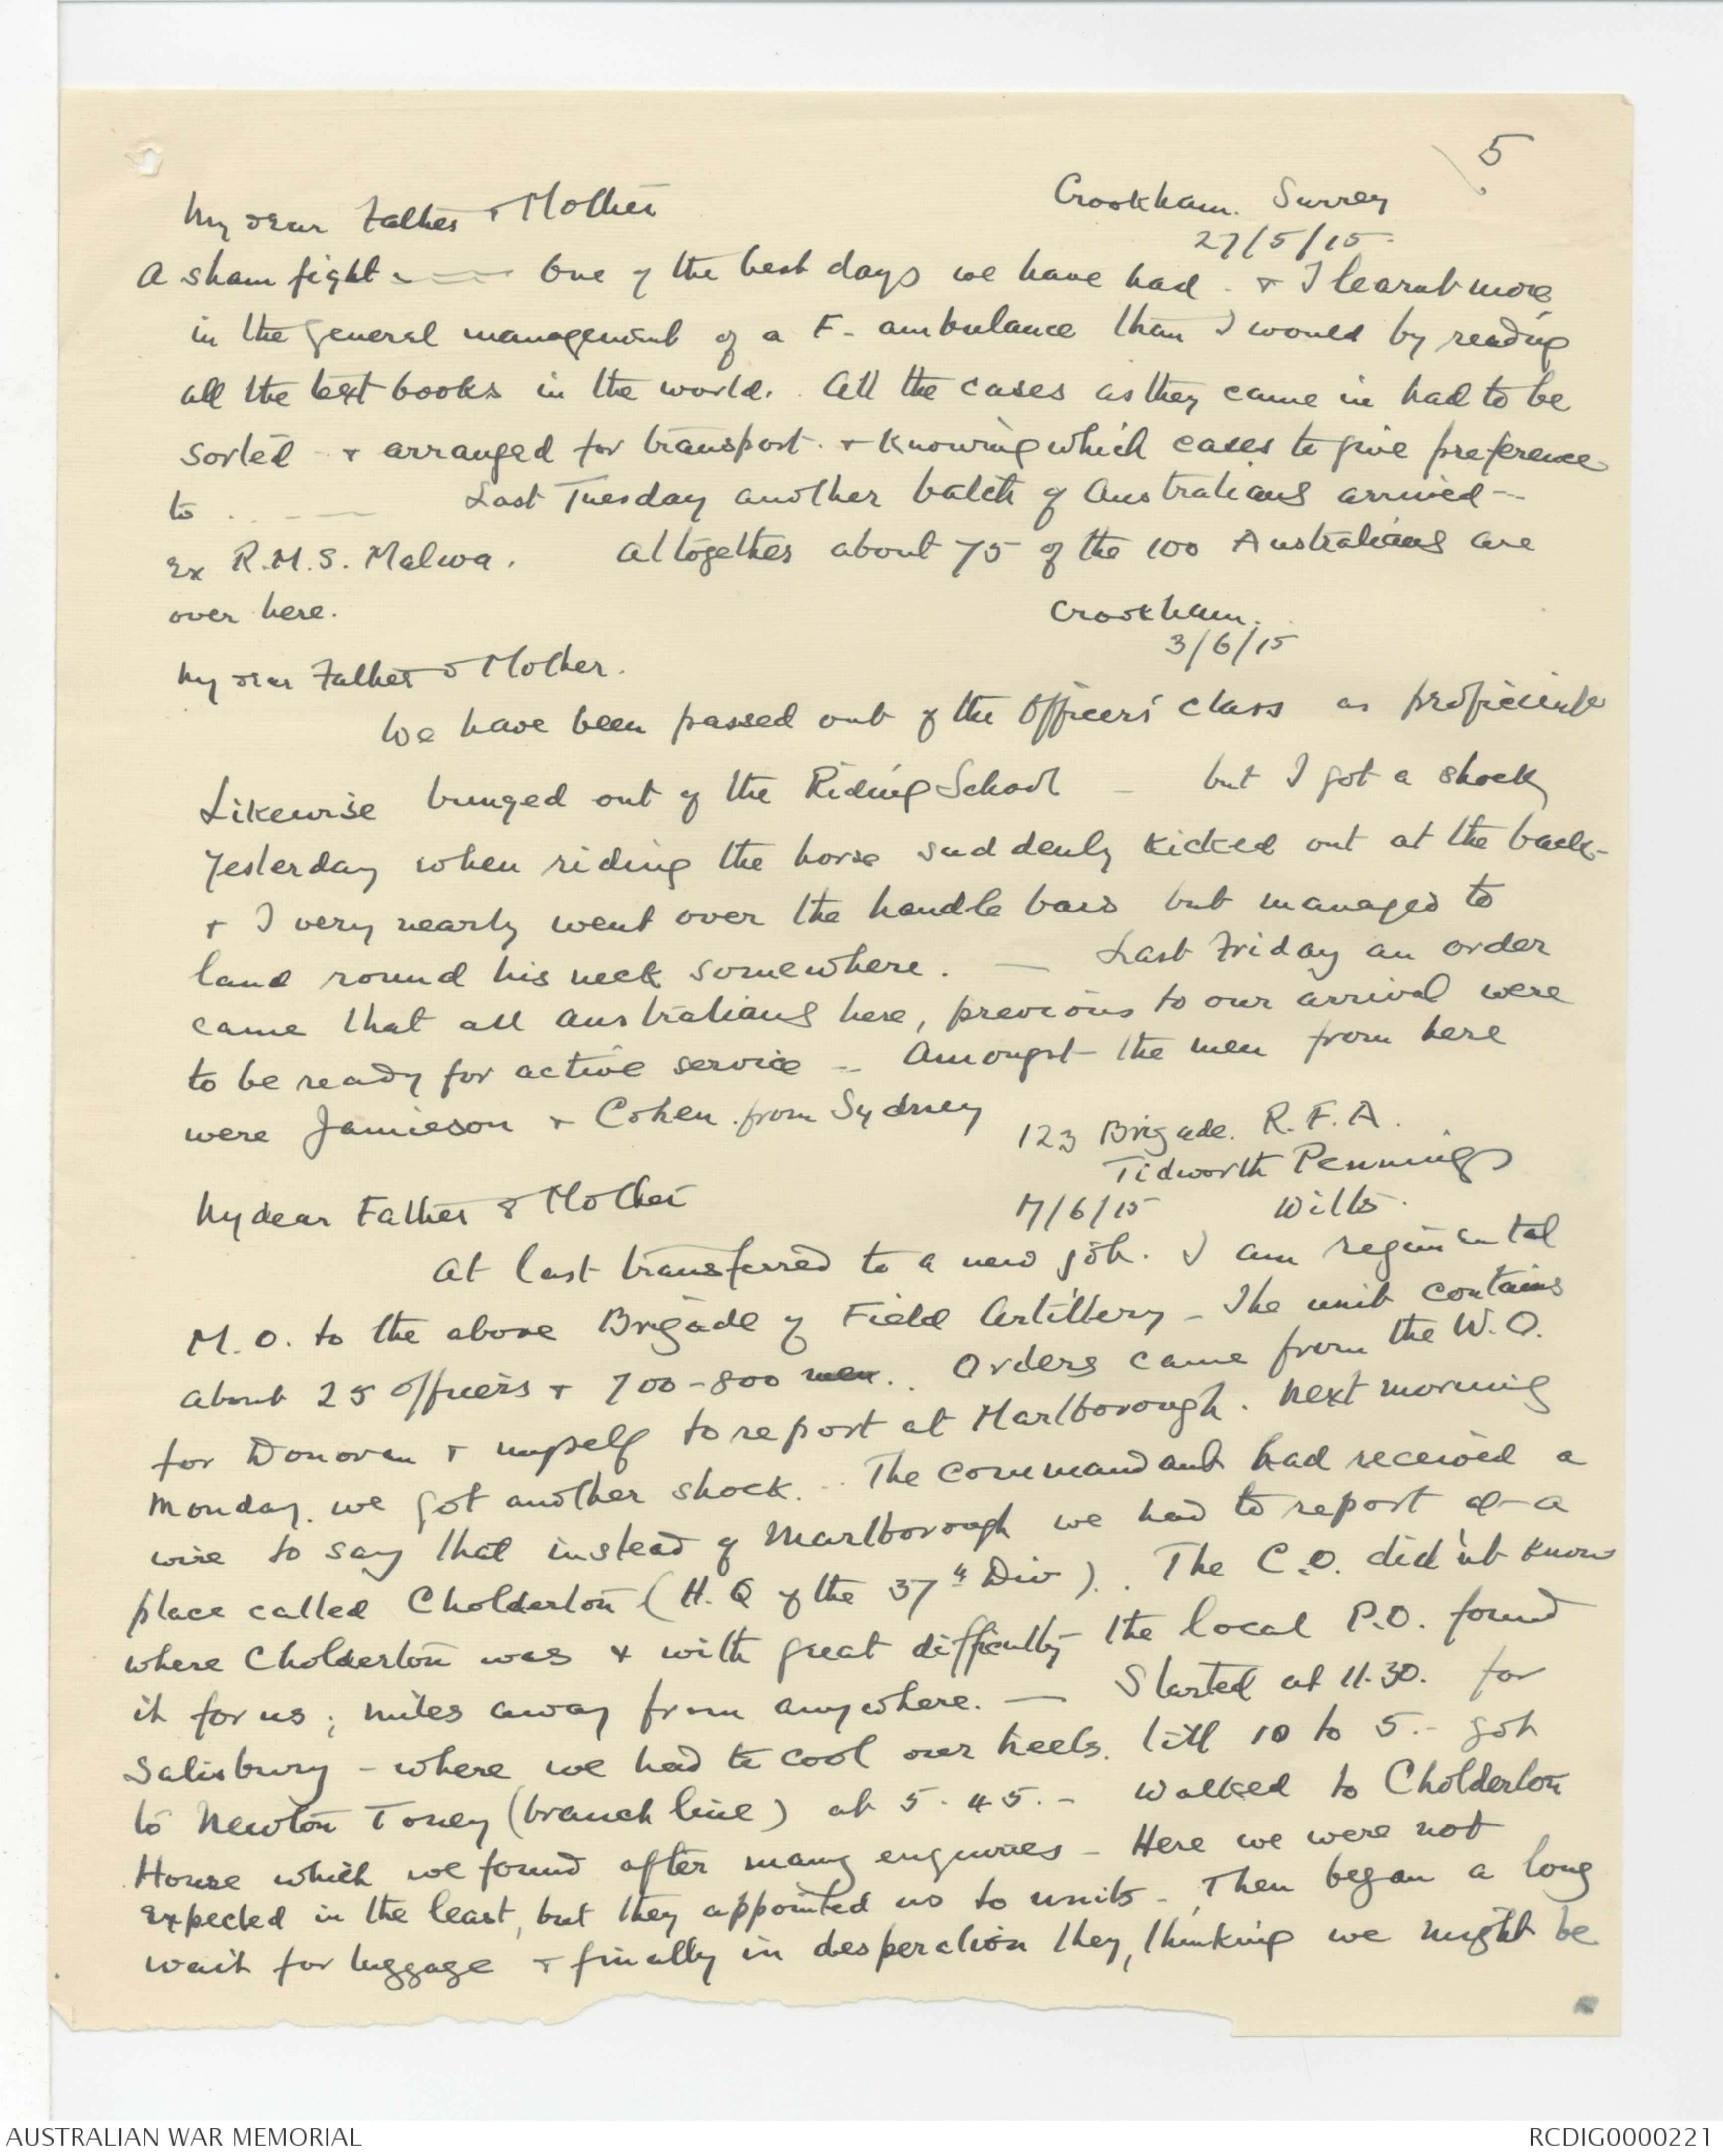 5
Crookham. Surrey
27/5/15
My dear Father & Mother
A sham fight - One of the best days we have had. & I learnt more
in the general management of a F. ambulance than I would by reading
all the text books in the world. All the cases as they came in had to be
sorted & arranged for transport. & knowing which cases to give preference
to. Last Tuesday another batch of Australians arrived -
ex R.M.S. Malwa. Altogether about 75 of the 100 Australians are
over here.
Crookham.
3/6/15
My dear Father & Mother.
We have been passed out of the Officers' class as proficient
Likewise bunged out of the Riding School - but I got a shock
yesterday when riding the horse suddenly kicked out at the back -
& I very nearly went over the handle bars but managed to
land round his neck somewhere. - Last Friday an order
came that all Australians here, previous to our arrival were
to be ready for active service - Amongst the men from here
were Jamieson & Cohen from Sydney
123 Brigade. R.F.A.
Tidworth Pennings
17/6/15 Wilts.
My dear Father & Mother
At last transferred to a new job. I am regimental
M.O. to the above Brigade of Field Artillery - The unit contains
about 25 officers & 700-800 men. Orders came from the W.O.
for Donovan & myself to report at Marlborough. Next morning
Monday. we got another shock. - The Commandant had received a
wire to say that instead of Marlborough we had to report at a
place called Cholderton (H.Q of the 37th Div). The C.O. did'nt know
where Cholderton was & with great difficulty the local P.O. found
it for us; miles away from anywhere. - Started at 11.30. for
Salisbury - where we had to cool our heels. till 10 to 5. - got
to Newton Toney (branch line) at 5.45. - Walked to Cholderton
House which we found after many enquiries - Here we were not
expected in the least, but they appointed us to units - Then began a long
wait for luggage & finally in desperation they, thinking we might be
AUSTRALIAN WAR MEMORIAL
RCDIG0000221